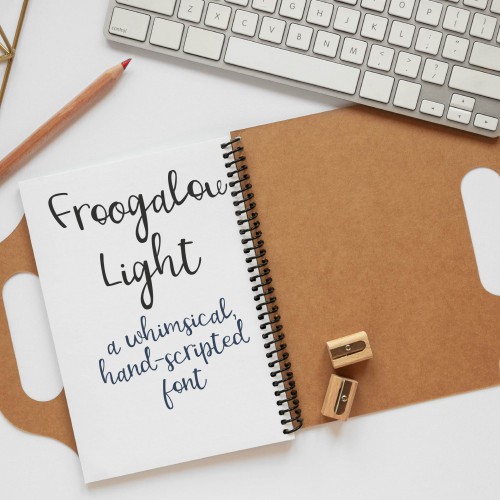 Froogalow
Light
a whimsical,
hand-scripted
font